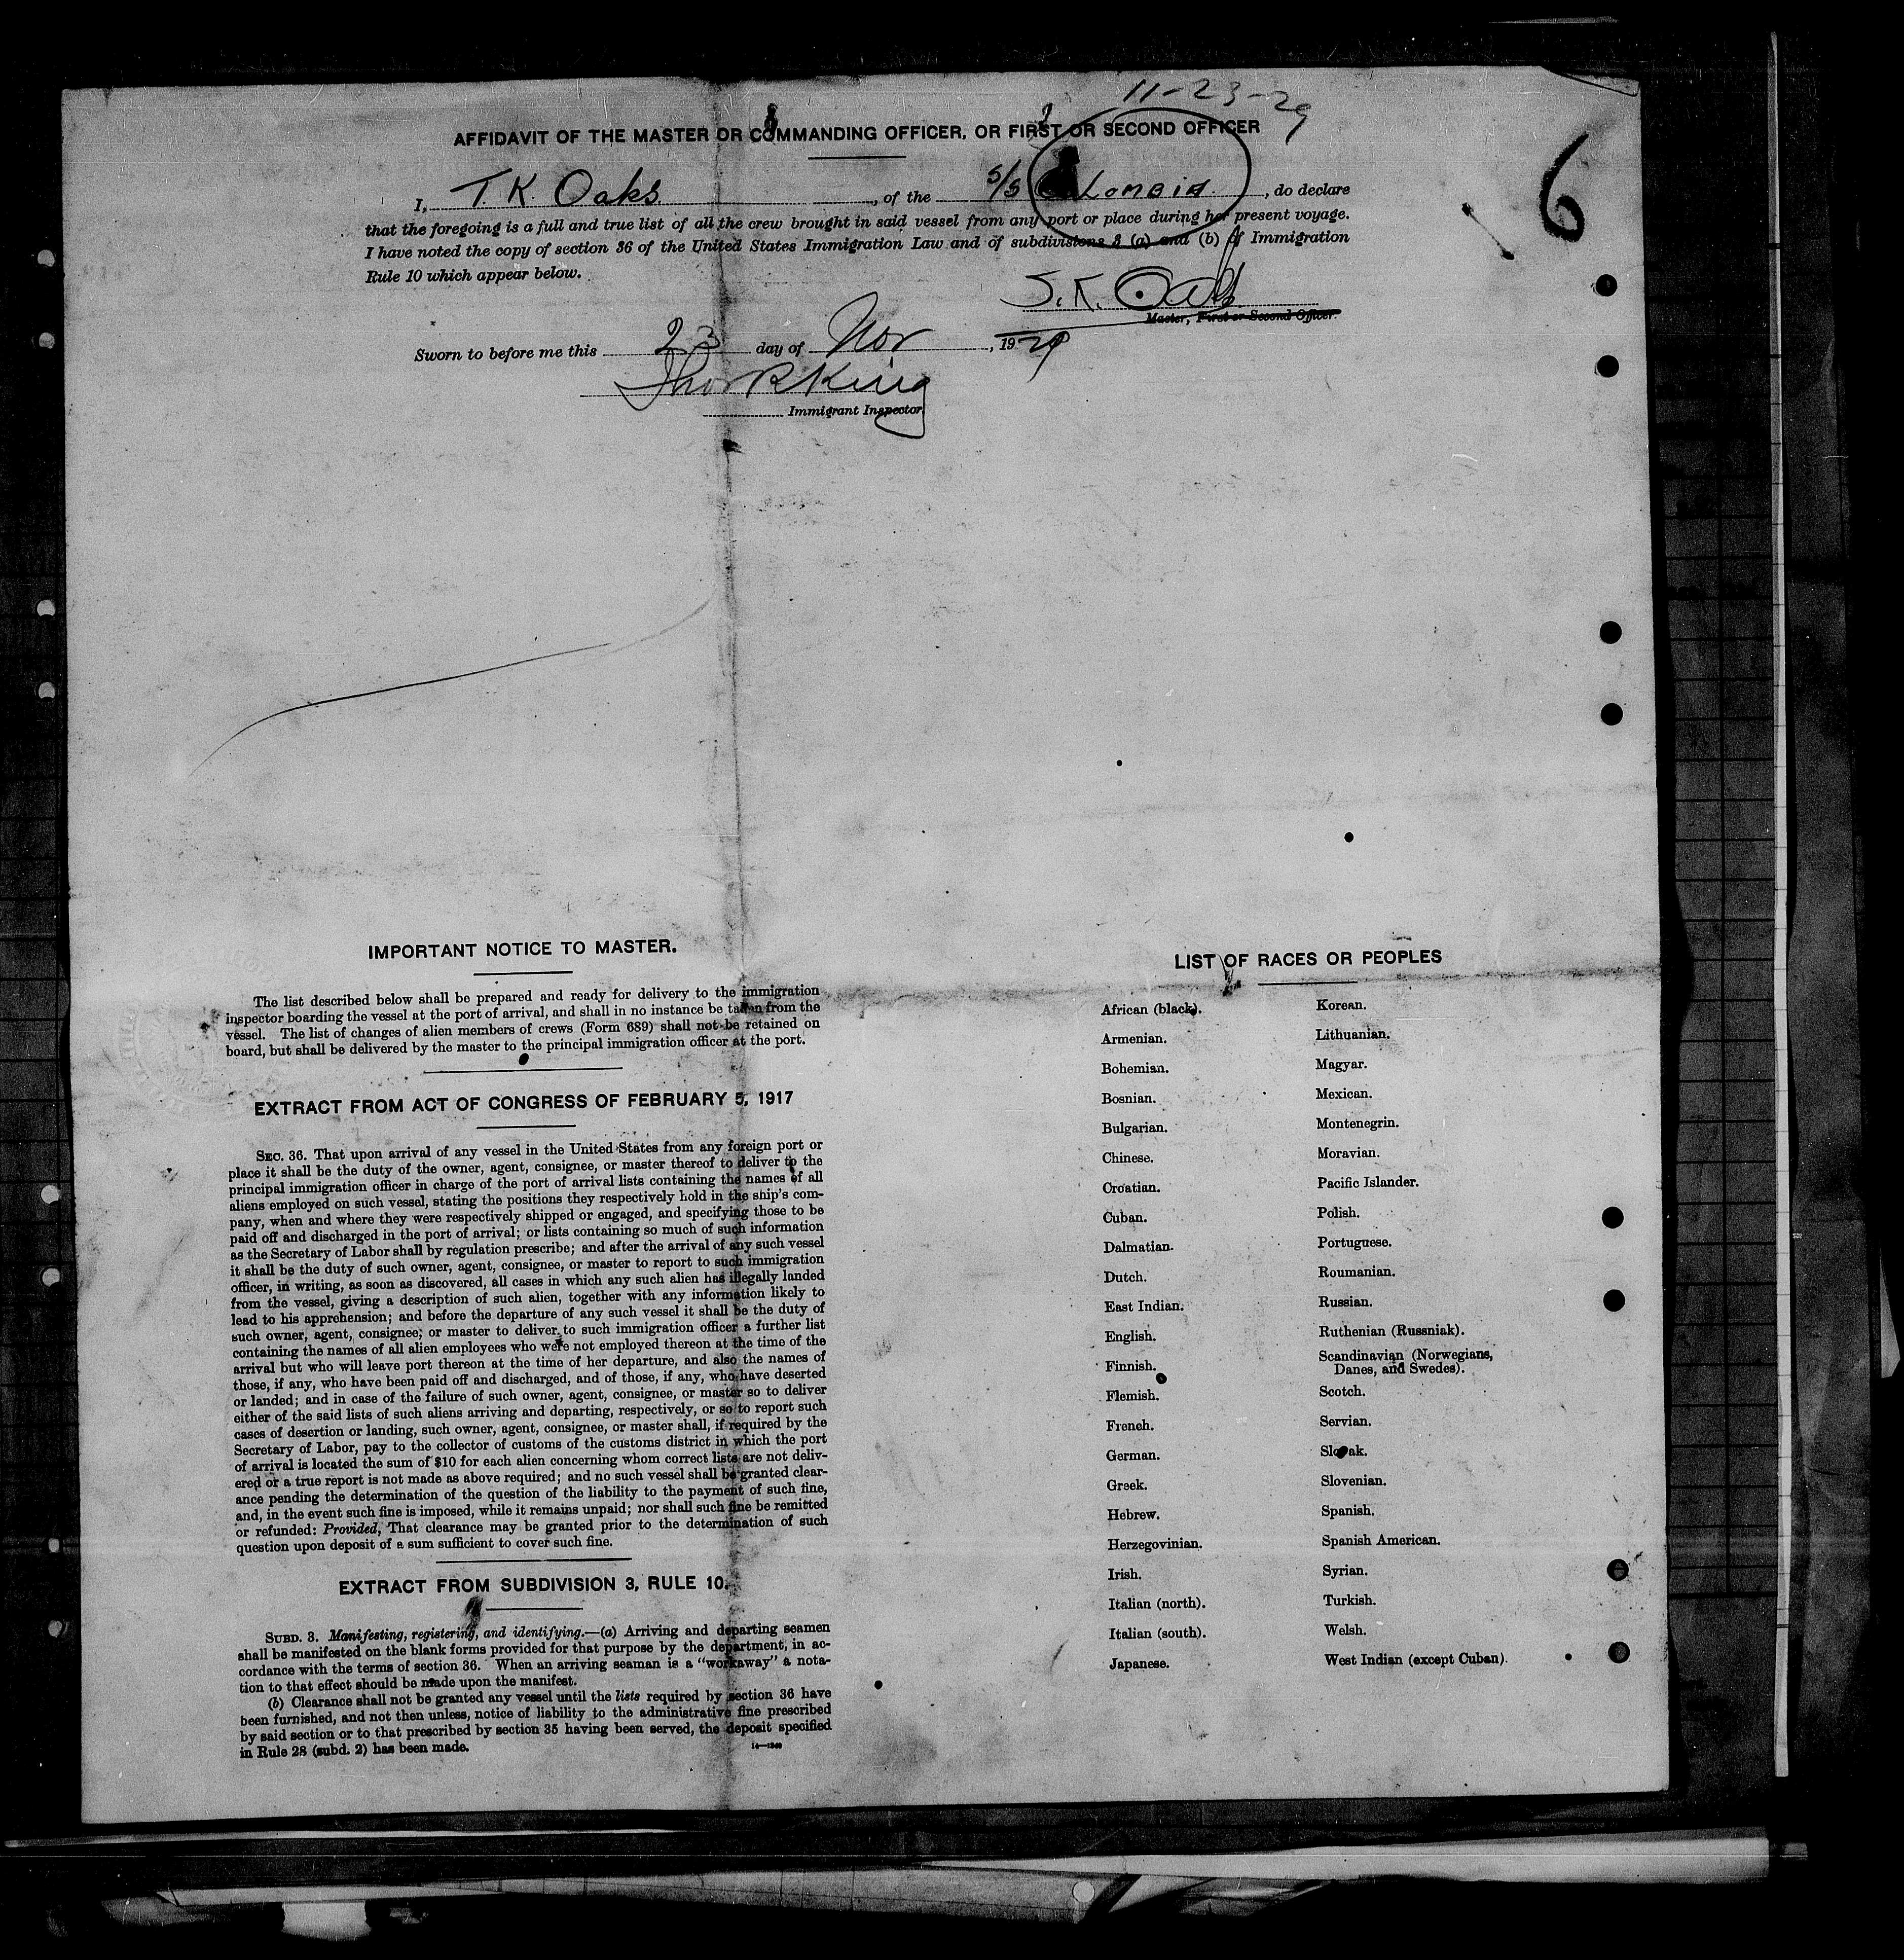 11-23-29
AFFIDAVIT OF THE MASTER OR COMMANDING OFFICER, OR FIRST OR SECOND OFFICER
6
I, T. K. Oaks, of the S/S Colombia, do declare
that the foregoing is a full and true list of all the crew brought in said vessel from any port or place during her present voyage.
I have noted the copy of section 36 of the United States Immigration Law and of subdivisions 3 (a) and (b) of Immigration
Rule 10 which appear below.
Master, First or Second Officer.
Sworn to before me this 23 day of Nov, 1929
Immigrant Inspector
IMPORTANT NOTICE TO MASTER.
The list described below shall be prepared and ready for delivery to the immigration
inspector boarding the vessel at the port of arrival, and shall in no instance be taken from the
vessel. The list of changes of alien members of crews (Form 689) shall not be retained on
board, but shall be delivered by the master to the principal immigration officer at the port.
EXTRACT FROM ACT OF CONGRESS OF FEBRUARY 5, 1917
SEC. 36. That upon arrival of any vessel in the United States from any foreign port or
place it shall be the duty of the owner, agent, consignee, or master thereof to deliver to the
principal immigration officer in charge of the port of arrival lists containing the names of all
aliens employed on such vessel, stating the positions they respectively hold in the ship's com-
pany, when and where they were respectively shipped or engaged, and specifying those to be
paid off and discharged in the port of arrival; or lists containing so much of such information
as the Secretary of Labor shall by regulation prescribe; and after the arrival of any such vessel
it shall be the duty of such owner, agent, consignee, or master to report to such immigration
officer, in writing, as soon as discovered, all cases in which any such alien has illegally landed
from the vessel, giving a description of such alien, together with any information likely to
lead to his apprehension; and before the departure of any such vessel it shall be the duty of
such owner, agent, consignee, or master to deliver to such immigration officer a further list
containing the names of all alien employees who were not employed thereon at the time of the
arrival but who will leave port thereon at the time of her departure, and also the names of
those, if any, who have been paid off and discharged, and of those, if any, who have deserted
or landed; and in case of the failure of such owner, agent, consignee, or master so to deliver
either of the said lists of such aliens arriving and departing, respectively, or so to report such
cases of desertion or landing, such owner, agent, consignee, or master shall, if required by the
Secretary of Labor, pay to the collector of customs of the customs district in which the port
of arrival is located the sum of $10 for each alien concerning whom correct lists are not deliv-
ered or a true report is not made as above required; and no such vessel shall be granted clear-
ance pending the determination of the question of the liability to the payment of such fine,
and, in the event such fine is imposed, while it remains unpaid; nor shall such fine be remitted
or refunded: Provided, That clearance may be granted prior to the determination of such
question upon deposit of a sum sufficient to cover such fine.
EXTRACT FROM SUBDIVISION 3, RULE 10.
SUBD. 3. Manifesting, registering, and identifying.—(a) Arriving and departing seamen
shall be manifested on the blank forms provided for that purpose by the department, in ac-
cordance with the terms of section 36. When an arriving seaman is a "workaway" a nota-
tion to that effect should be made upon the manifest.
(b) Clearance shall not be granted any vessel until the lists required by section 36 have
been furnished, and not then unless, notice of liability to the administrative fine prescribed
by said section or to that prescribed by section 35 having been served, the deposit specified
in Rule 28 (subd. 2) has been made.
LIST OF RACES OR PEOPLES
African (black).
Armenian.
Bohemian.
Bosnian.
Bulgarian.
Chinese.
Croatian.
Cuban.
Dalmatian.
Dutch.
East Indian.
English.
Finnish.
Flemish.
French.
German.
Greek.
Hebrew.
Herzegovinian.
Irish.
Italian (north).
Italian (south).
Japanese.
Korean.
Lithuanian.
Magyar.
Mexican.
Montenegrin.
Moravian.
Pacific Islander.
Polish.
Portuguese.
Roumanian.
Russian.
Ruthenian (Russniak).
Scandinavian (Norwegians,
Danes, and Swedes).
Scotch.
Servian.
Slovak.
Slovenian.
Spanish.
Spanish American.
Syrian.
Turkish.
Welsh.
West Indian (except Cuban).